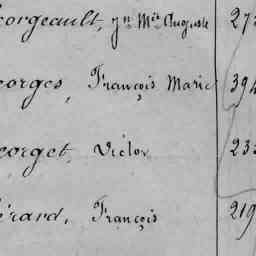 eorgeault, Jn Mie Auguste 27
eorges, François Marie 394
eorget, Victor 23
érard, François 219